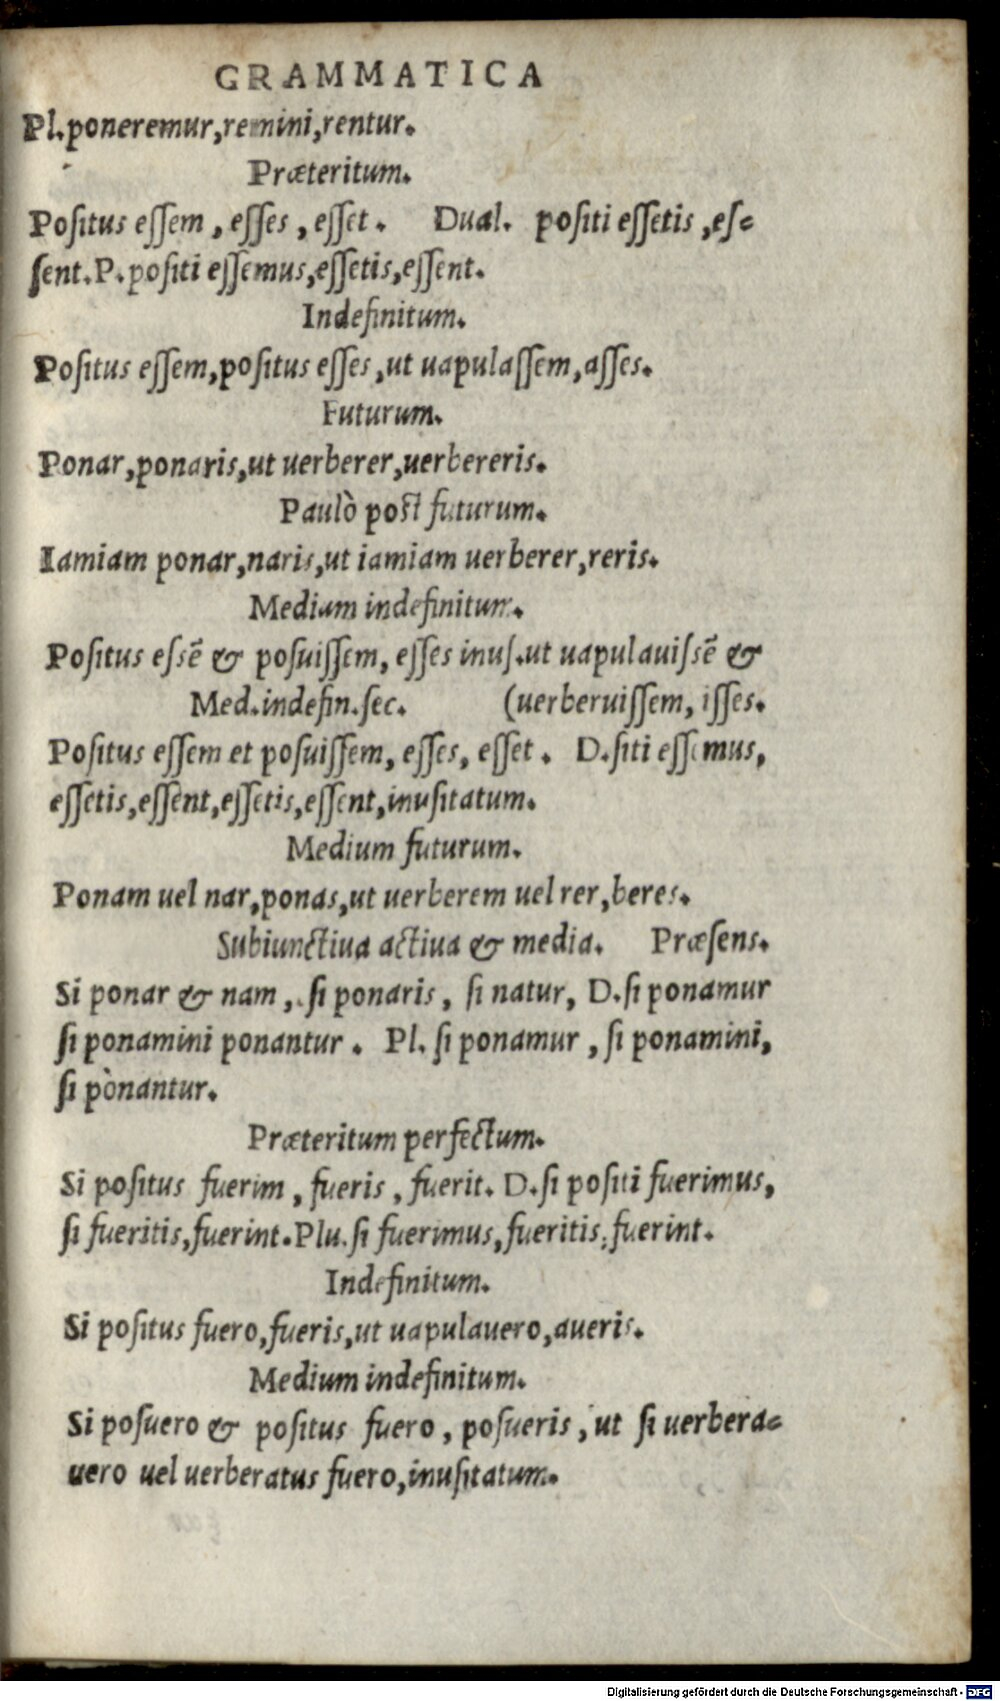 GRAMMATICA
Pl.poneremur,remini,rentur.
Præteritum.
Poſitus eſſem, eſſes, eſſet. Dual. poſiti eſſetis, eſ-
ſent.P.poſiti eſſemus,eſſetis,eſſent.
Indefinitum.
Poſitus eſſem,poſitus eſſes,ut uapulaſſem,aſſes.
Futurum.
Ponar,ponaris,ut uerberer,uerbereris.
Paulò poſt futurum.
Iamiam ponar,naris,ut iamiam uerberer,reris.
Medium indefinitum.
Poſitus eſsē & poſuiſſem, eſſes inuſ.ut uapulauiſsē &
Med.indefin.ſec. (uerberuiſſem, iſſes.
Poſitus eſſem et poſuiſſem, eſſes, eſſet. D.ſiti eſſemus,
eſſetis,eſſent,eſſetis,eſſent,inuſitatum.
Medium futurum.
Ponam uel nar,ponas,ut uerberem uel rer,beres.
Subiunctiua actiua & media. Præſens.
Si ponar & nam, ſi ponaris, ſi natur, D.ſi ponamur
ſi ponamini ponantur. Pl. ſi ponamur, ſi ponamini,
ſi pònantur.
Præteritum perfectum.
Si poſitus fuerim, fueris, fuerit. D.ſi poſiti fuerimus,
ſi fueritis,fuerint.Plu.ſi fuerimus,fueritis,fuerint.
Indefinitum.
Si poſitus fuero,fueris,ut uapulauero,aueris.
Medium indefinitum.
Si poſuero & poſitus fuero, poſueris, ut ſi uerbera-
uero uel uerberatus fuero,inuſitatum.
Digitalisierung gefördert durch die Deutsche Forschungsgemeinschaft - DFG